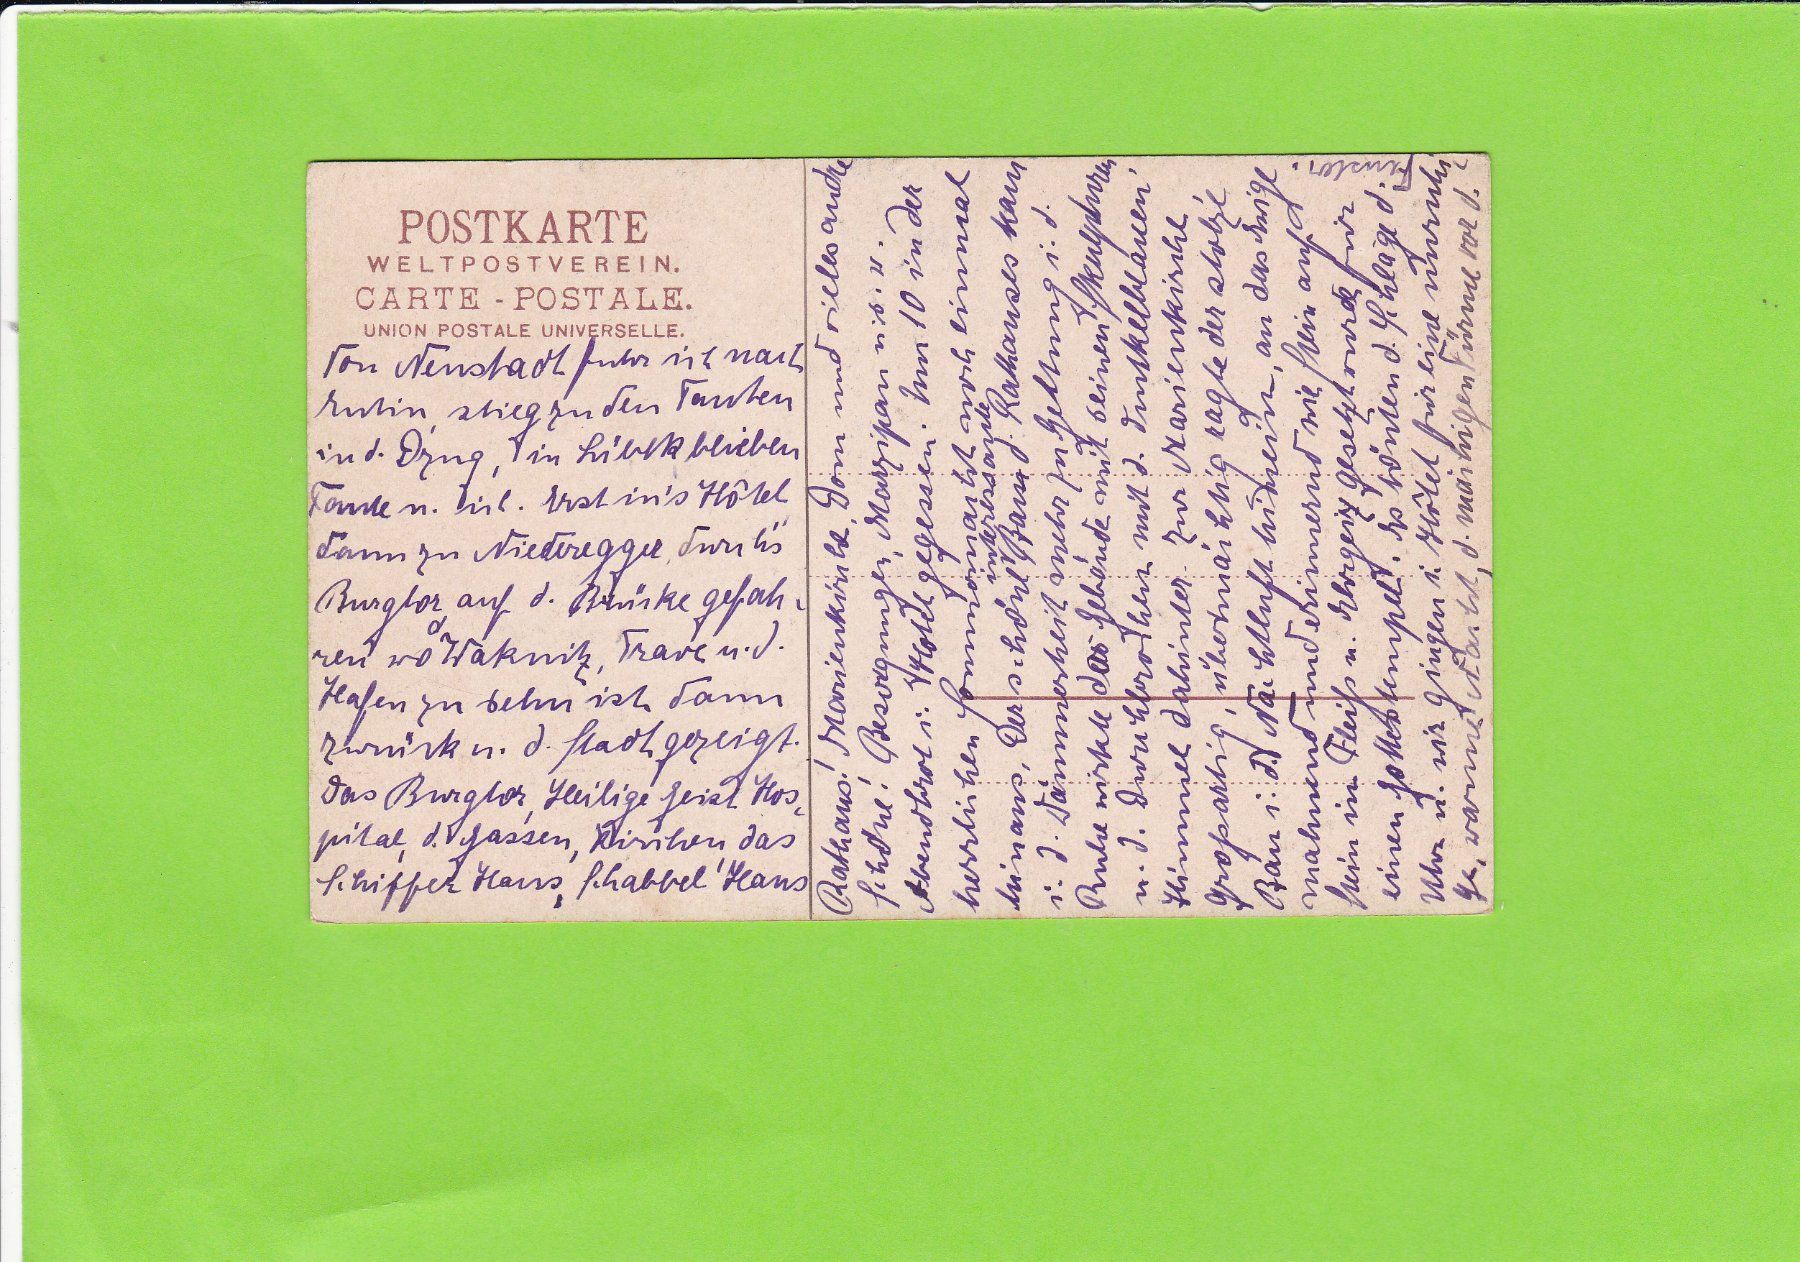 POSTKARTE
WELTPOSTVEREIN.
CARTE - POSTALE.
UNION POSTALE UNIVERSELLE.
Von Neustadt fuhr ich nach
Eutin, stieg zu den Tanten
in d. Dzug, in Lübeck blieben
Tante u. ich. Erst in's Hôtel
dann zu Niederegger, durch's
Burgtor auf d. Brücke gefah-
ren wo Waknitz, Trave u. d.
Hafen zu sehn ist, dann
zurück u. d. Stadt gezeigt.
Das Burgtor, Heilige Geist Hos-
pital, d. Gassen, Kirchen das
Schiffer Haus, Schabbel Haus
Rathaus! Marienkirche, Dom und vieles andre
Schöne! Besorgungen, Marzipan u.s.w.
Abendbrot i. Hotel gegessen. Um 10 in der
herrlichen Sommernacht noch einmal
hinaus. Der schöne interessante Bau d. Rathauses kam
i. d. Dämmerheit mehr zu Geltung i. d.
Ruhe wirkte das Gebäude mit seinen Skulpturen
u. d. Durchbrochen mit d. dunkelblauen
Himmel dahinter. Zur Marienkirche
Großartig, übermächtig ragte der stolze
Bau i. d. Nachtluft hinein, an das Ewige
mahnend und erinnernd wie Stein auf
Stein in Fleiß u. Ehrgeiz gesetzt wurde für
einen Gottestempel. Es tönten d. Schläge d.
Uhr u. wir gingen i. Hôtel für eine unruhi
ge, warme Nacht, d. mächtigen Türme vor d.
Fenster.